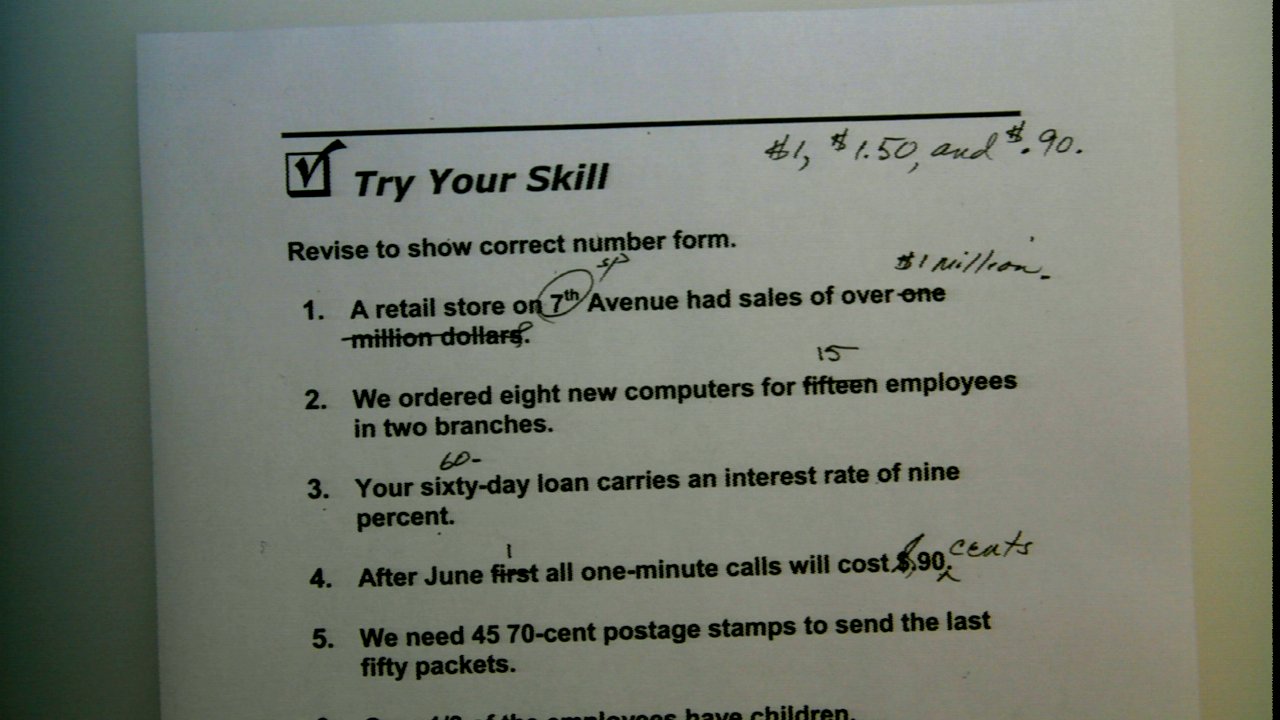 $1, $1.50, and $.90.
Try Your Skill
Revise to show correct number form.
sp
$1 million.
1. A retail store on 7th Avenue had sales of over one
million dollars.
15
2. We ordered eight new computers for fifteen employees
in two branches.
60-
3. Your sixty-day loan carries an interest rate of nine
percent.
1
cents
4. After June first all one-minute calls will cost $.90.
5. We need 45 70-cent postage stamps to send the last
fifty packets.
of the employees have children.